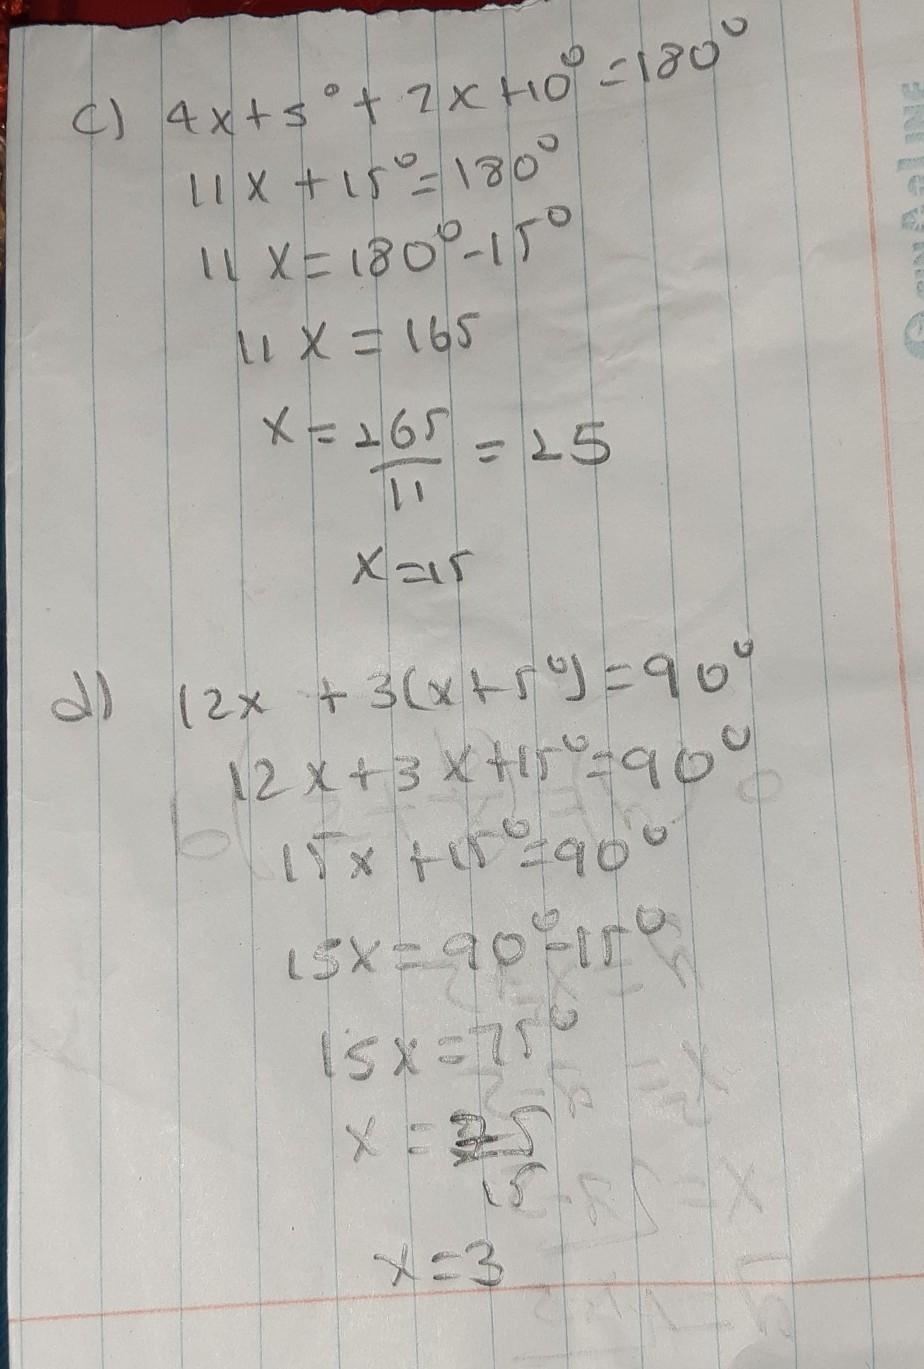 c) 4x+5°+7x+10°=180°
11x+15°=180°
11x=180°-15°
11x=165
x=265/11=25
x=15
d) 12x+3(x+5°)=90°
12x+3x+15°=90°
15x+15°=90°
15x=90°-15°
15x=75°
x=75/15
x=3